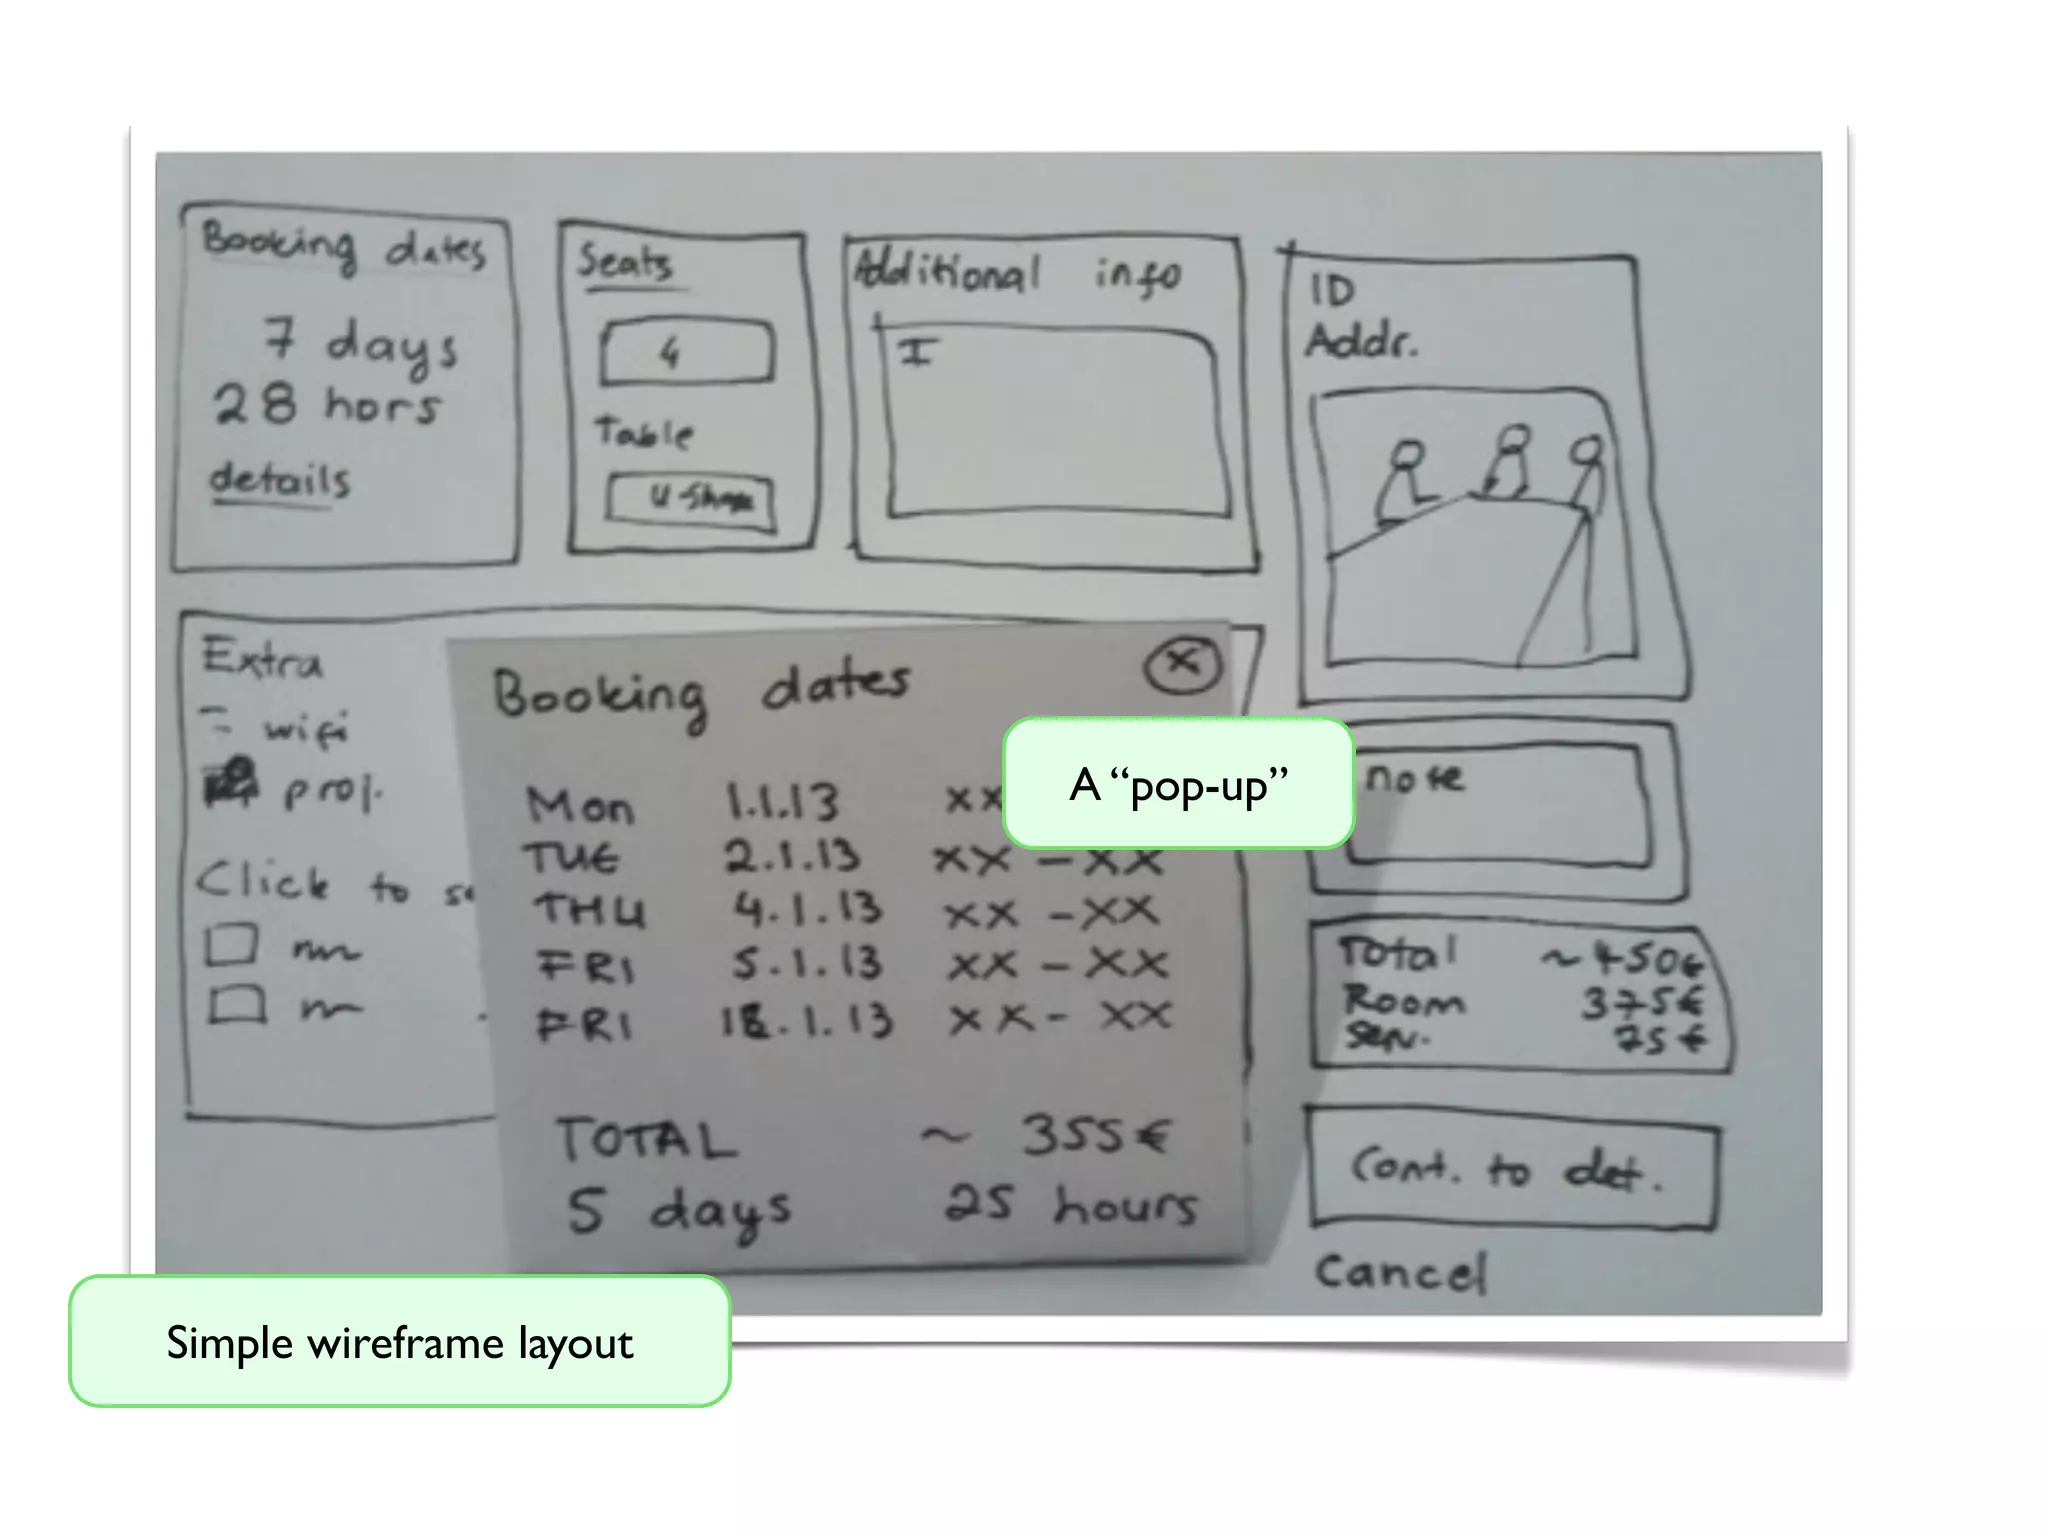 Booking dates
7 days
28 hors
details
Seats
4
Table
U-Shape
Additional info
I
ID
Addr.
Extra
wifi
proj.
Click to se
Booking dates
X
Mon 1.1.13 xx
TUE 2.1.13 xx - xx
THU 4.1.13 xx - xx
FRI 5.1.13 xx - xx
FRI .1.13 xx - xx
TOTAL ~ 355€
5 days 25 hours
A “pop-up”
note
Total ~450€
Room 375€
ser. 75€
Cont. to det.
Cancel
Simple wireframe layout